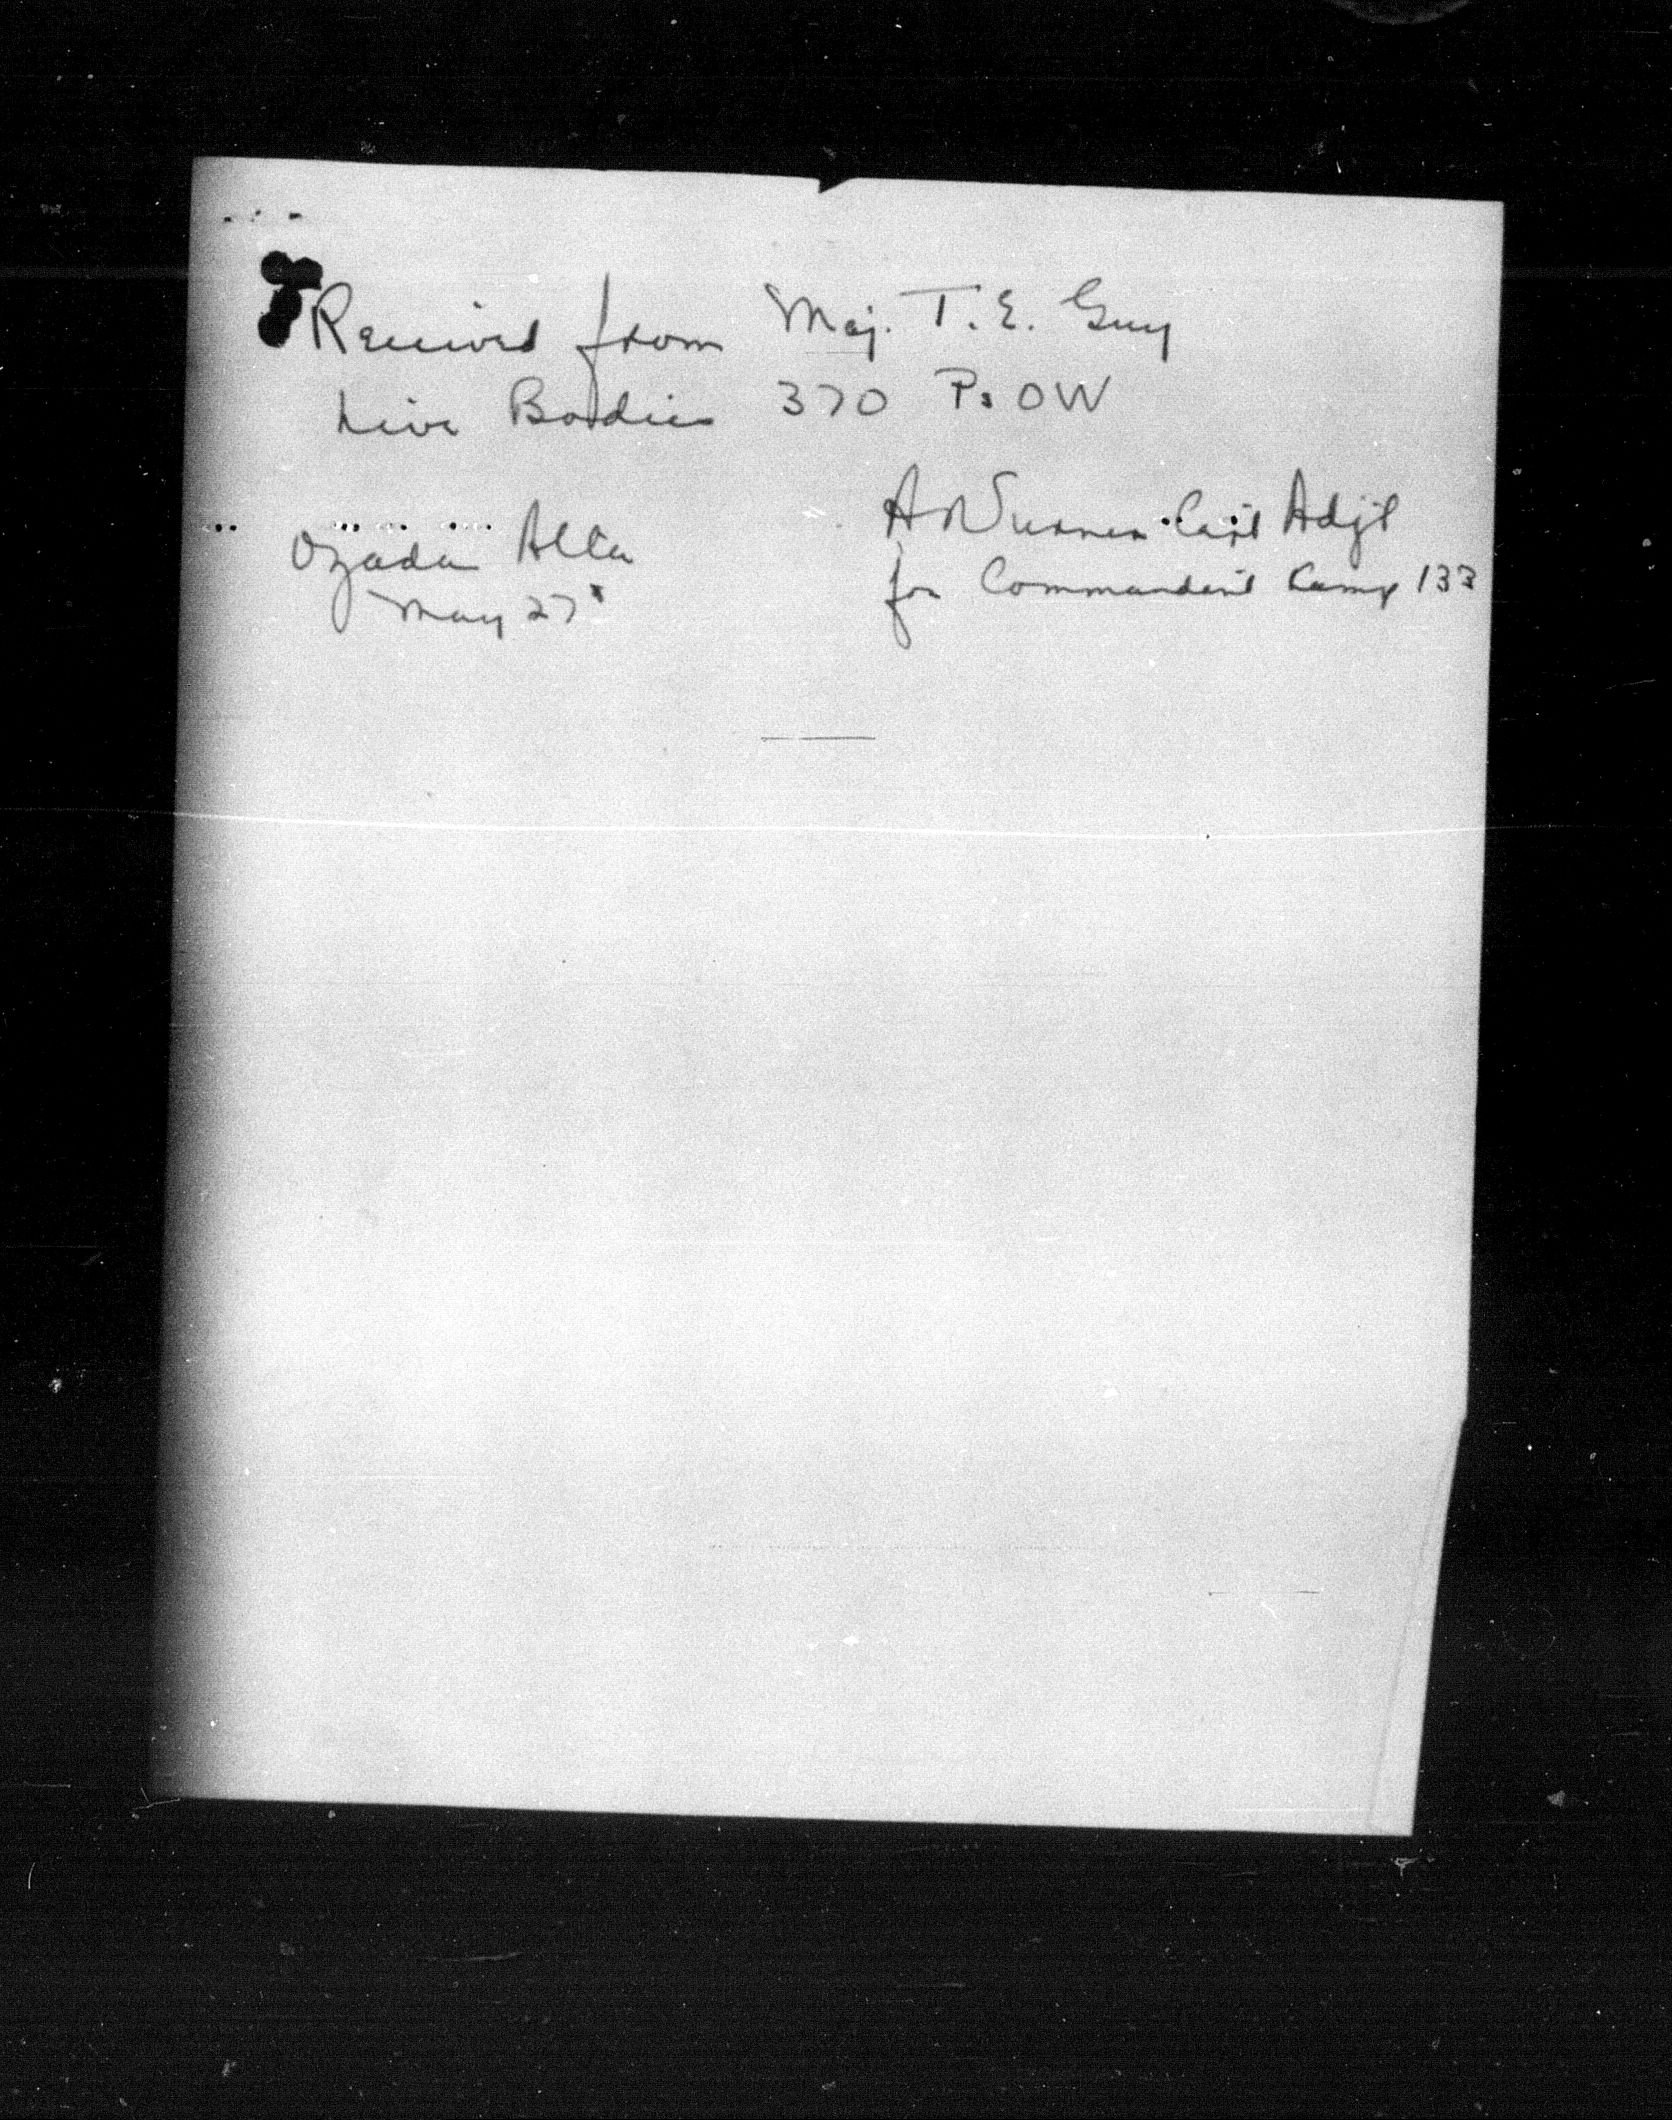 Received from Maj. T. E. Guy
Live Bodies 370 Ps OW
Ozada Alta
May 27
Capt Adjt
for Commandant Camp 133